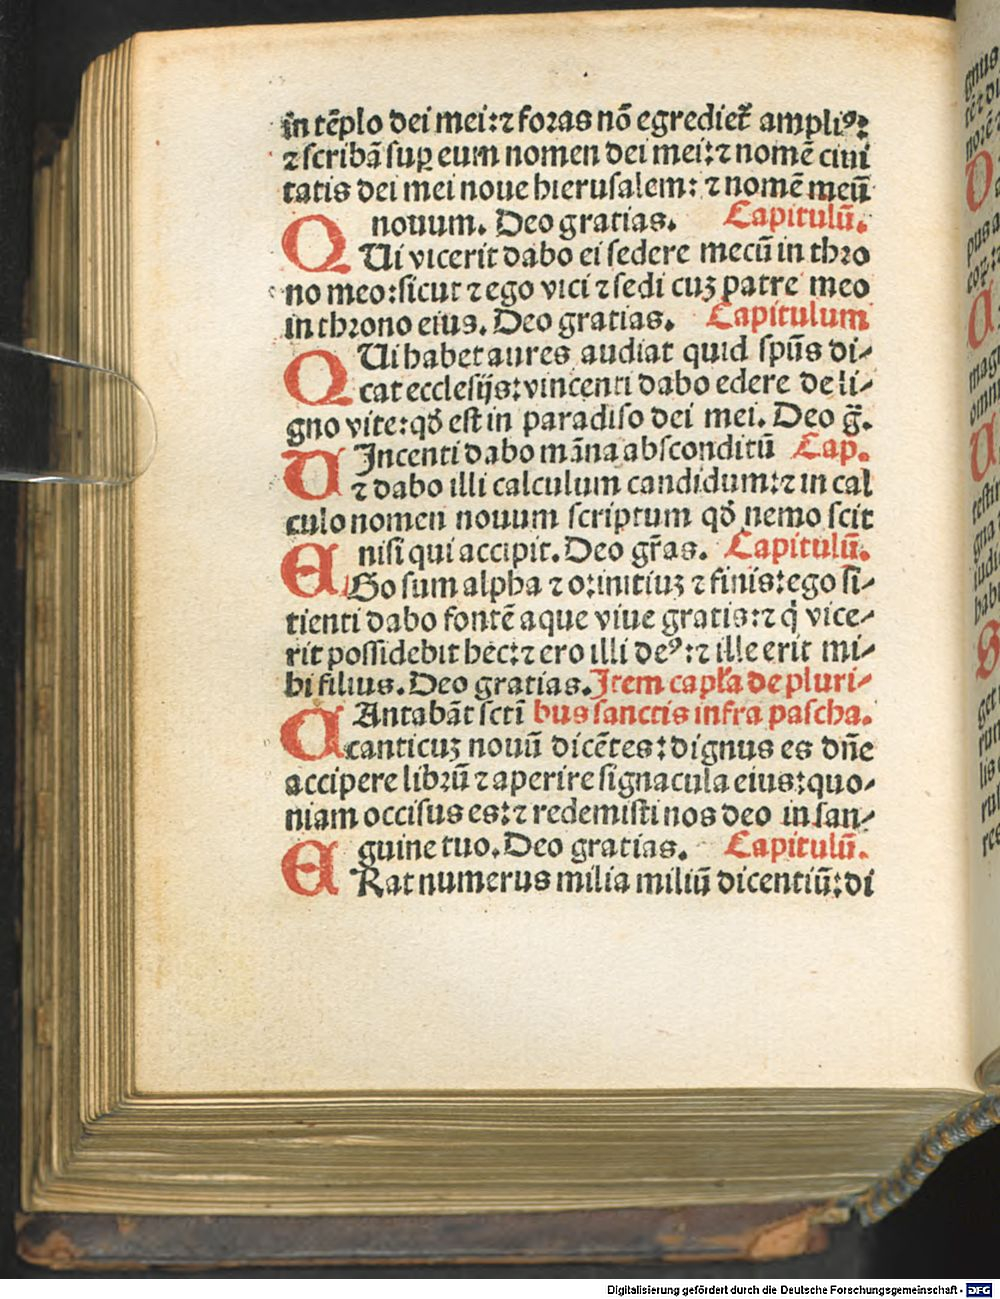 in tēplo dei mei:⁊ foras nō egrediet̃ ampliꝰ:
⁊ scribā suꝑ eum nomen dei mei:⁊ nomē ciui
tatis dei mei noue hierusalem: ⁊ nomē meū
nouum. Deo gratias. Capitulū.
QUi vicerit dabo ei sedere mecū in thro
no meo:sicut ⁊ ego vici ⁊ sedi cuꝫ patre meo
in throno eius. Deo gratias. Capitulum
QUi habet aures audiat quid spūs di-
cat ecclesijs:vincenti dabo edere de li-
gno vite:qđ est in paradiso dei mei. Deo g̃.
VIncenti dabo māna absconditū Cap.
⁊ dabo illi calculum candidum:⁊ in cal
culo nomen nouum scriptum qđ nemo scit
nisi qui accipit. Deo gr̃as. Capitulū.
EGo sum alpha ⁊ o:initiuꝫ ⁊ finis:ego si-
tienti dabo fontē aque viue gratis:⁊ q̇ vice-
rit possidebit hec:⁊ ero illi deꝰ:⁊ ille erit mi-
hi filius. Deo gratias. Item capl̃a de pluri-
CAntabāt scti bus sanctis infra pascha.
canticuꝫ nouū dicētes:dignus es dñe
accipere librū ⁊ aperire signacula eius:quo-
niam occisus es:⁊ redemisti nos deo in san-
guine tuo. Deo gratias. Capitulū.
ERat numerus milia miliū dicentiū:di
Digitalisierung gefördert durch die Deutsche Forschungsgemeinschaft - DFG